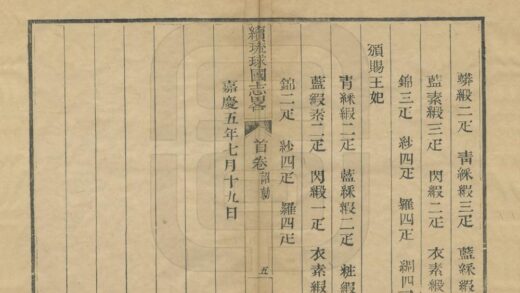 蟒緞二疋 青綵緞三疋 藍綵緞
藍素緞三疋 閃緞二疋 衣素緞
錦三疋 紗四疋 羅四疋 綢四
頒賜王妃
青綵緞二疋 藍綵緞二疋 粧緞
藍緞素二疋 閃緞一疋 衣素緞
錦二疋 紗四疋 羅四疋
續琉球國志畧 首卷 詔勅 五
嘉慶五年七月十九日